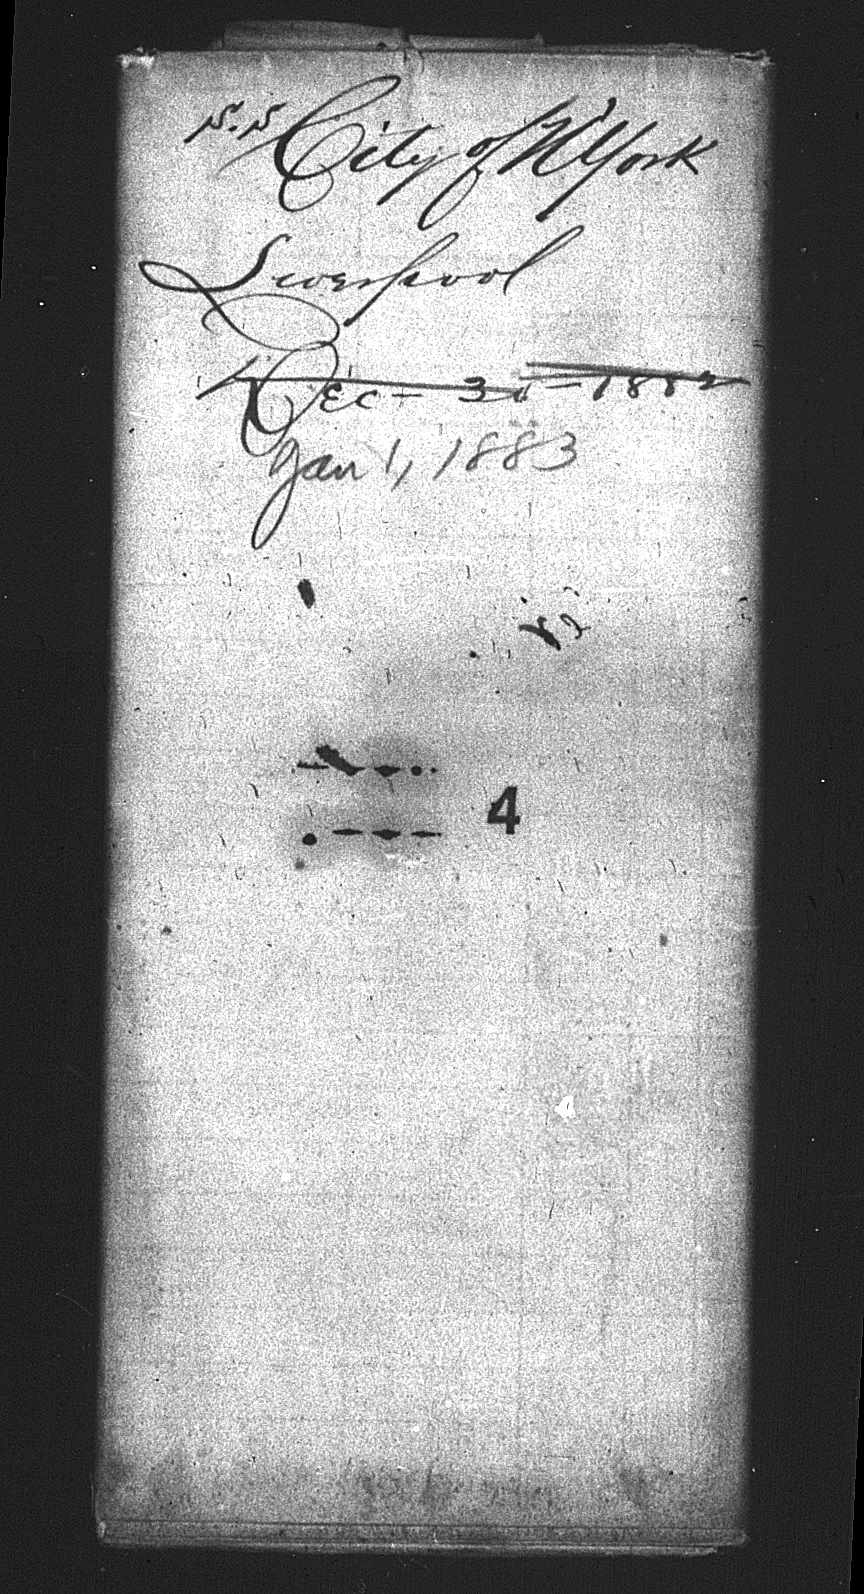 S.S City of N'York
Liverpool
Dec - 30 - 1882
Jan 1, 1883
4